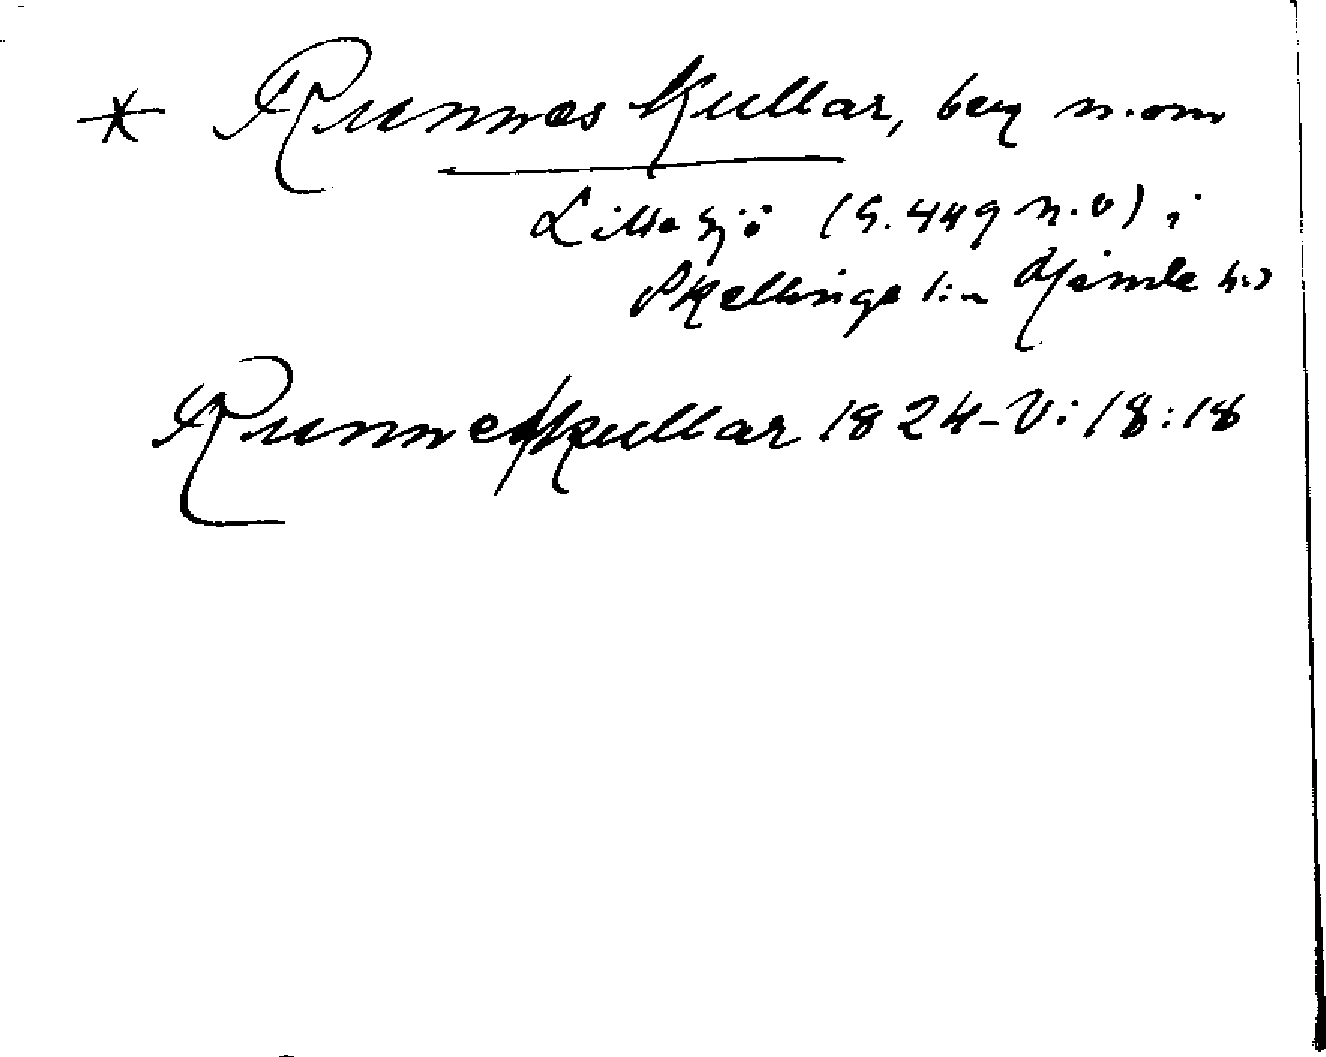 * Runnæs Kullar, berg n. om
Lilla sjö (S. 449 n. v) i
Skellinge s:n Himle h:d
Runnes/kullar 1824 - V: 18:18